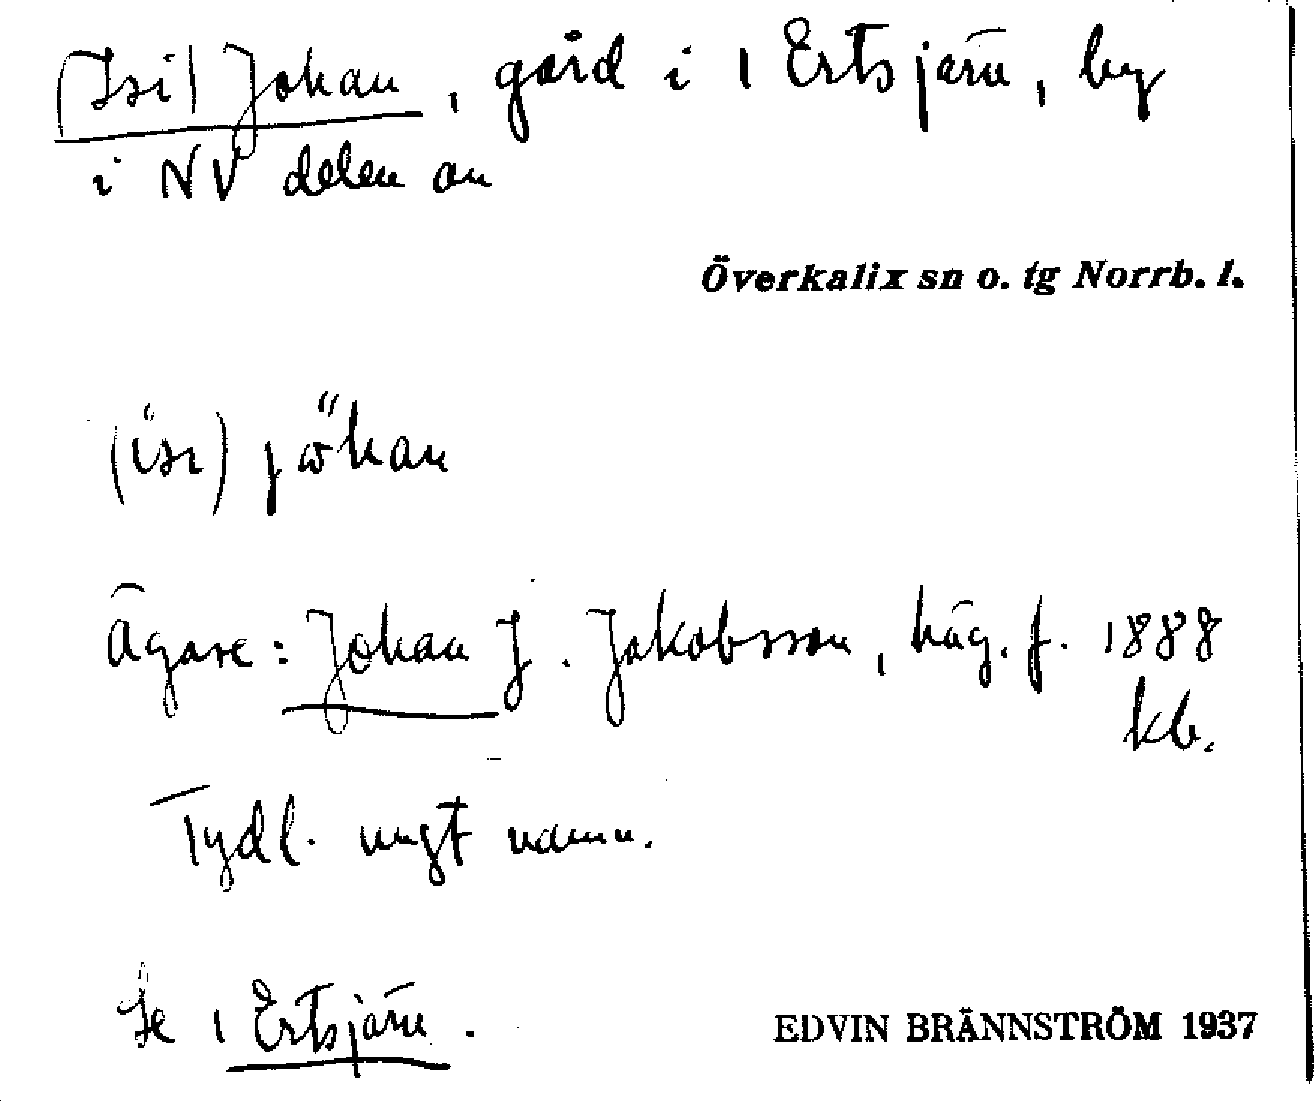 (Isi) Johan, gård i 1 Ertsjärn, by
i NV delen av
Överkalix sn o. tg Norrb. l.
Ägare: Johan J. Jakobsson, häg. f. 1888
kb.
Tydl. ungt namn.
Se 1 Ertsjärn.
EDVIN BRÄNNSTRÖM 1937